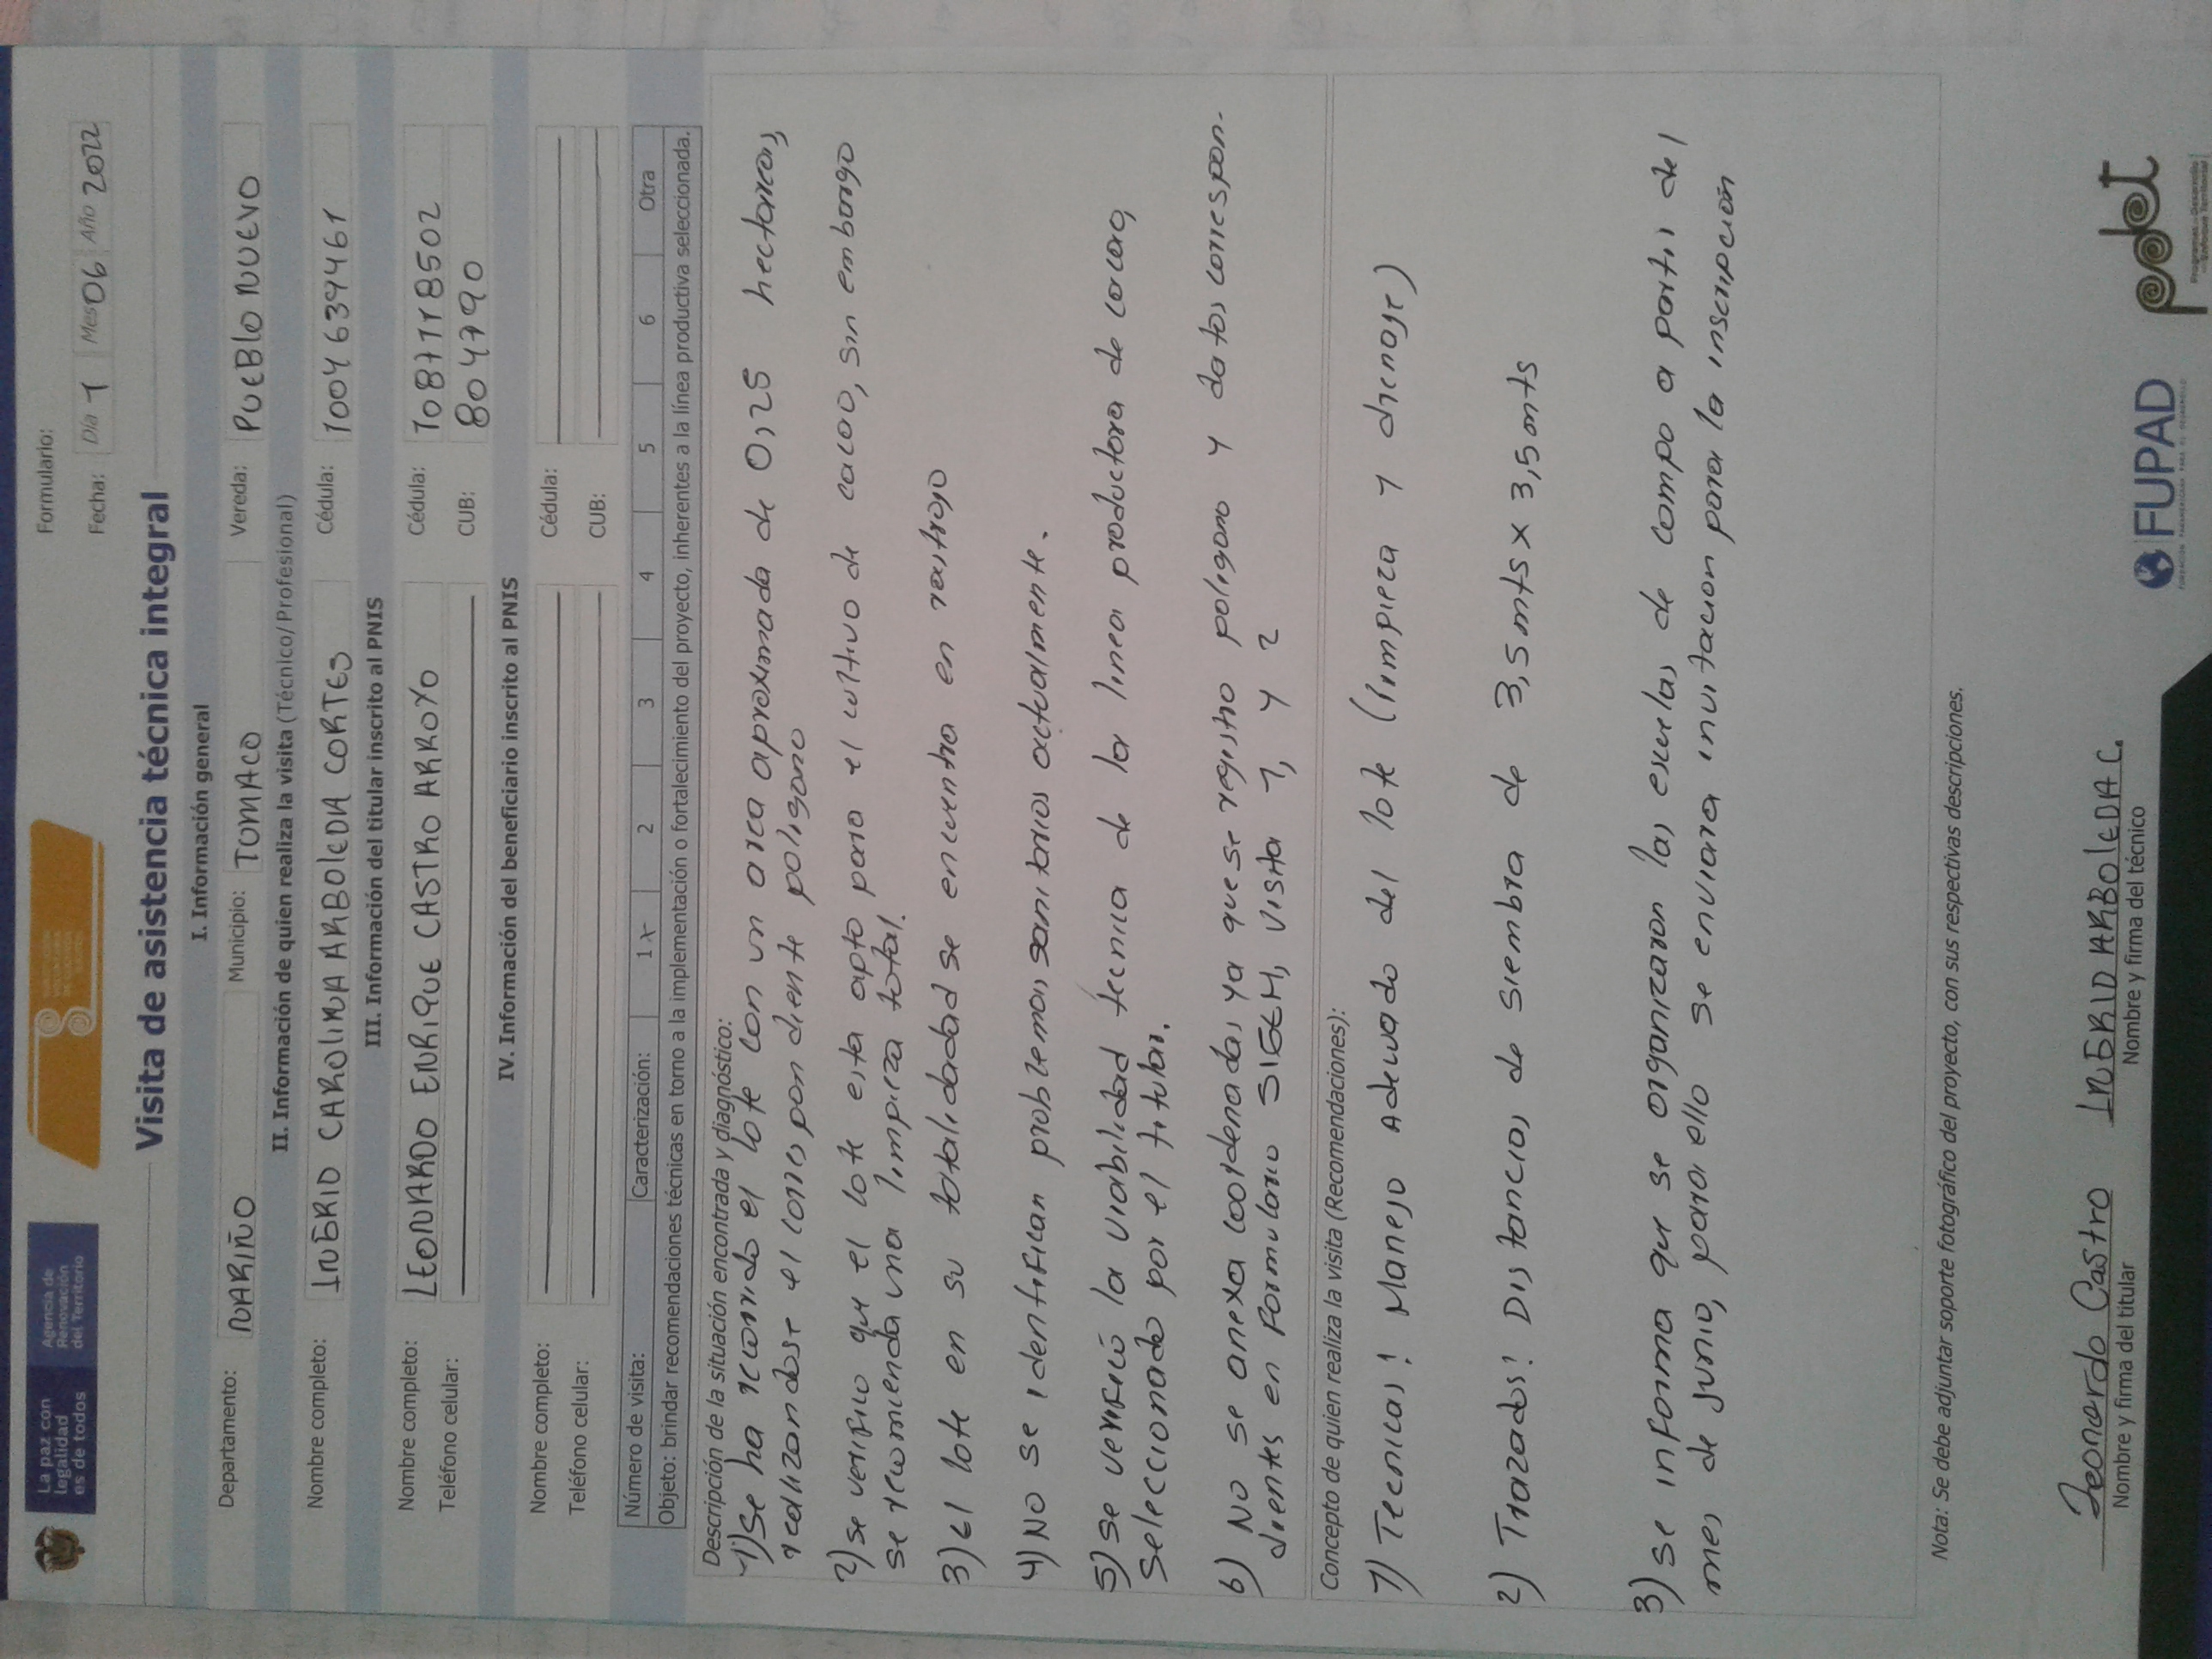 La paz con
legalidad
es de todos
Agencia de
Renovación
del Territorio
Formulario:
Fecha: Día 1 Mes 06 Año 2022
Visita de asistencia técnica integral
I. Información general
Departamento: NARIÑO Municipio: TUMACO Vereda: PUEBLO NUEVO
II. Información de quien realiza la visita (Técnico/Profesional)
Nombre completo: INGRID CAROLINA ARBOLEDA CORTES Cédula: 1004634461
III. Información del titular inscrito al PNIS
Nombre completo: LEONARDO ENRIQUE CASTRO ARROYO Cédula: 1087118502
Teléfono celular: CUB: 804790
IV. Información del beneficiario inscrito al PNIS
Nombre completo: Cédula:
Teléfono celular: CUB:
Número de visita: Caracterización: 1 x 2 3 4 5 6 Otra
Objeto: brindar recomendaciones técnicas en torno a la implementación o fortalecimiento del proyecto, inherentes a la línea productiva seleccionada.
Descripción de la situación encontrada y diagnóstico:
1) Se ha recorrido el lote con un area aproximada de 0,25 hectareas,
realizandose el correspondiente poligono
2) se verifico que el lote esta apto para el cultivo de cacao, sin embargo
se recomienda una limpieza total.
3) El lote en su totalidadad se encuentra en rastrojo
4) No se identifican problemas sanitarios actualmente.
5) se verificó la viabilidad técnica de la linea productora de cacao,
seleccionado por el titular.
6) No se anexa coordenadas ya que se registro poligono y datos correspon-
dientes en Formulario SIGEH, visita 1, y 2
Concepto de quien realiza la visita (Recomendaciones):
1) Tecnicas: Manejo Adecuado del lote (limpieza y drenaje)
2) Trazados: Distancias de siembra de 3,5mts x 3,5mts
3) se informa que se organizaron las escuelas de campo a partir del
mes de junio, para ello se enviara invitacion para la inscripción
Nota: Se debe adjuntar soporte fotográfico del proyecto, con sus respectivas descripciones.
Leonardo Castro
Nombre y firma del titular
INGRID ARBOLEDA C.
Nombre y firma del técnico
FUPAD
pdet